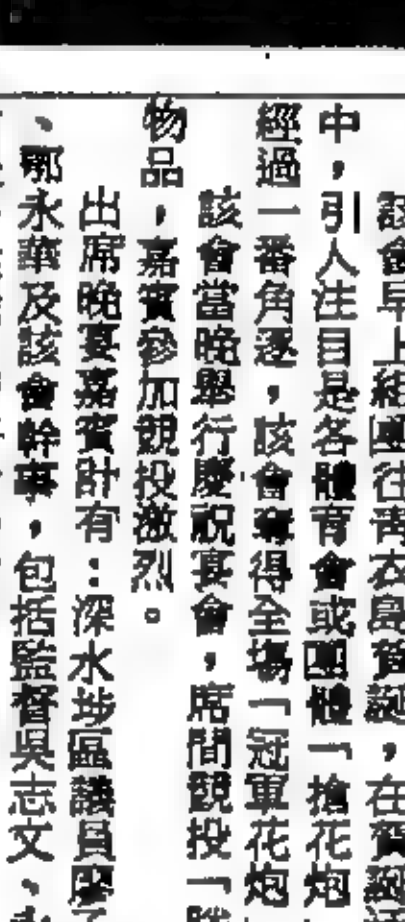 該會早上組團往青衣島賀誕，在賀誕
中，引人注目是各體育會或團體「搶花炮
經過一番角逐，該會奪得全場「冠軍花炮
該會當晚舉行慶祝宴會，席間競投「勝
物品，嘉賓參加競投激烈。
出席晚宴嘉賓計有：深水埗區議員廖
、鄭永華及該會幹事，包括監督吳志文、